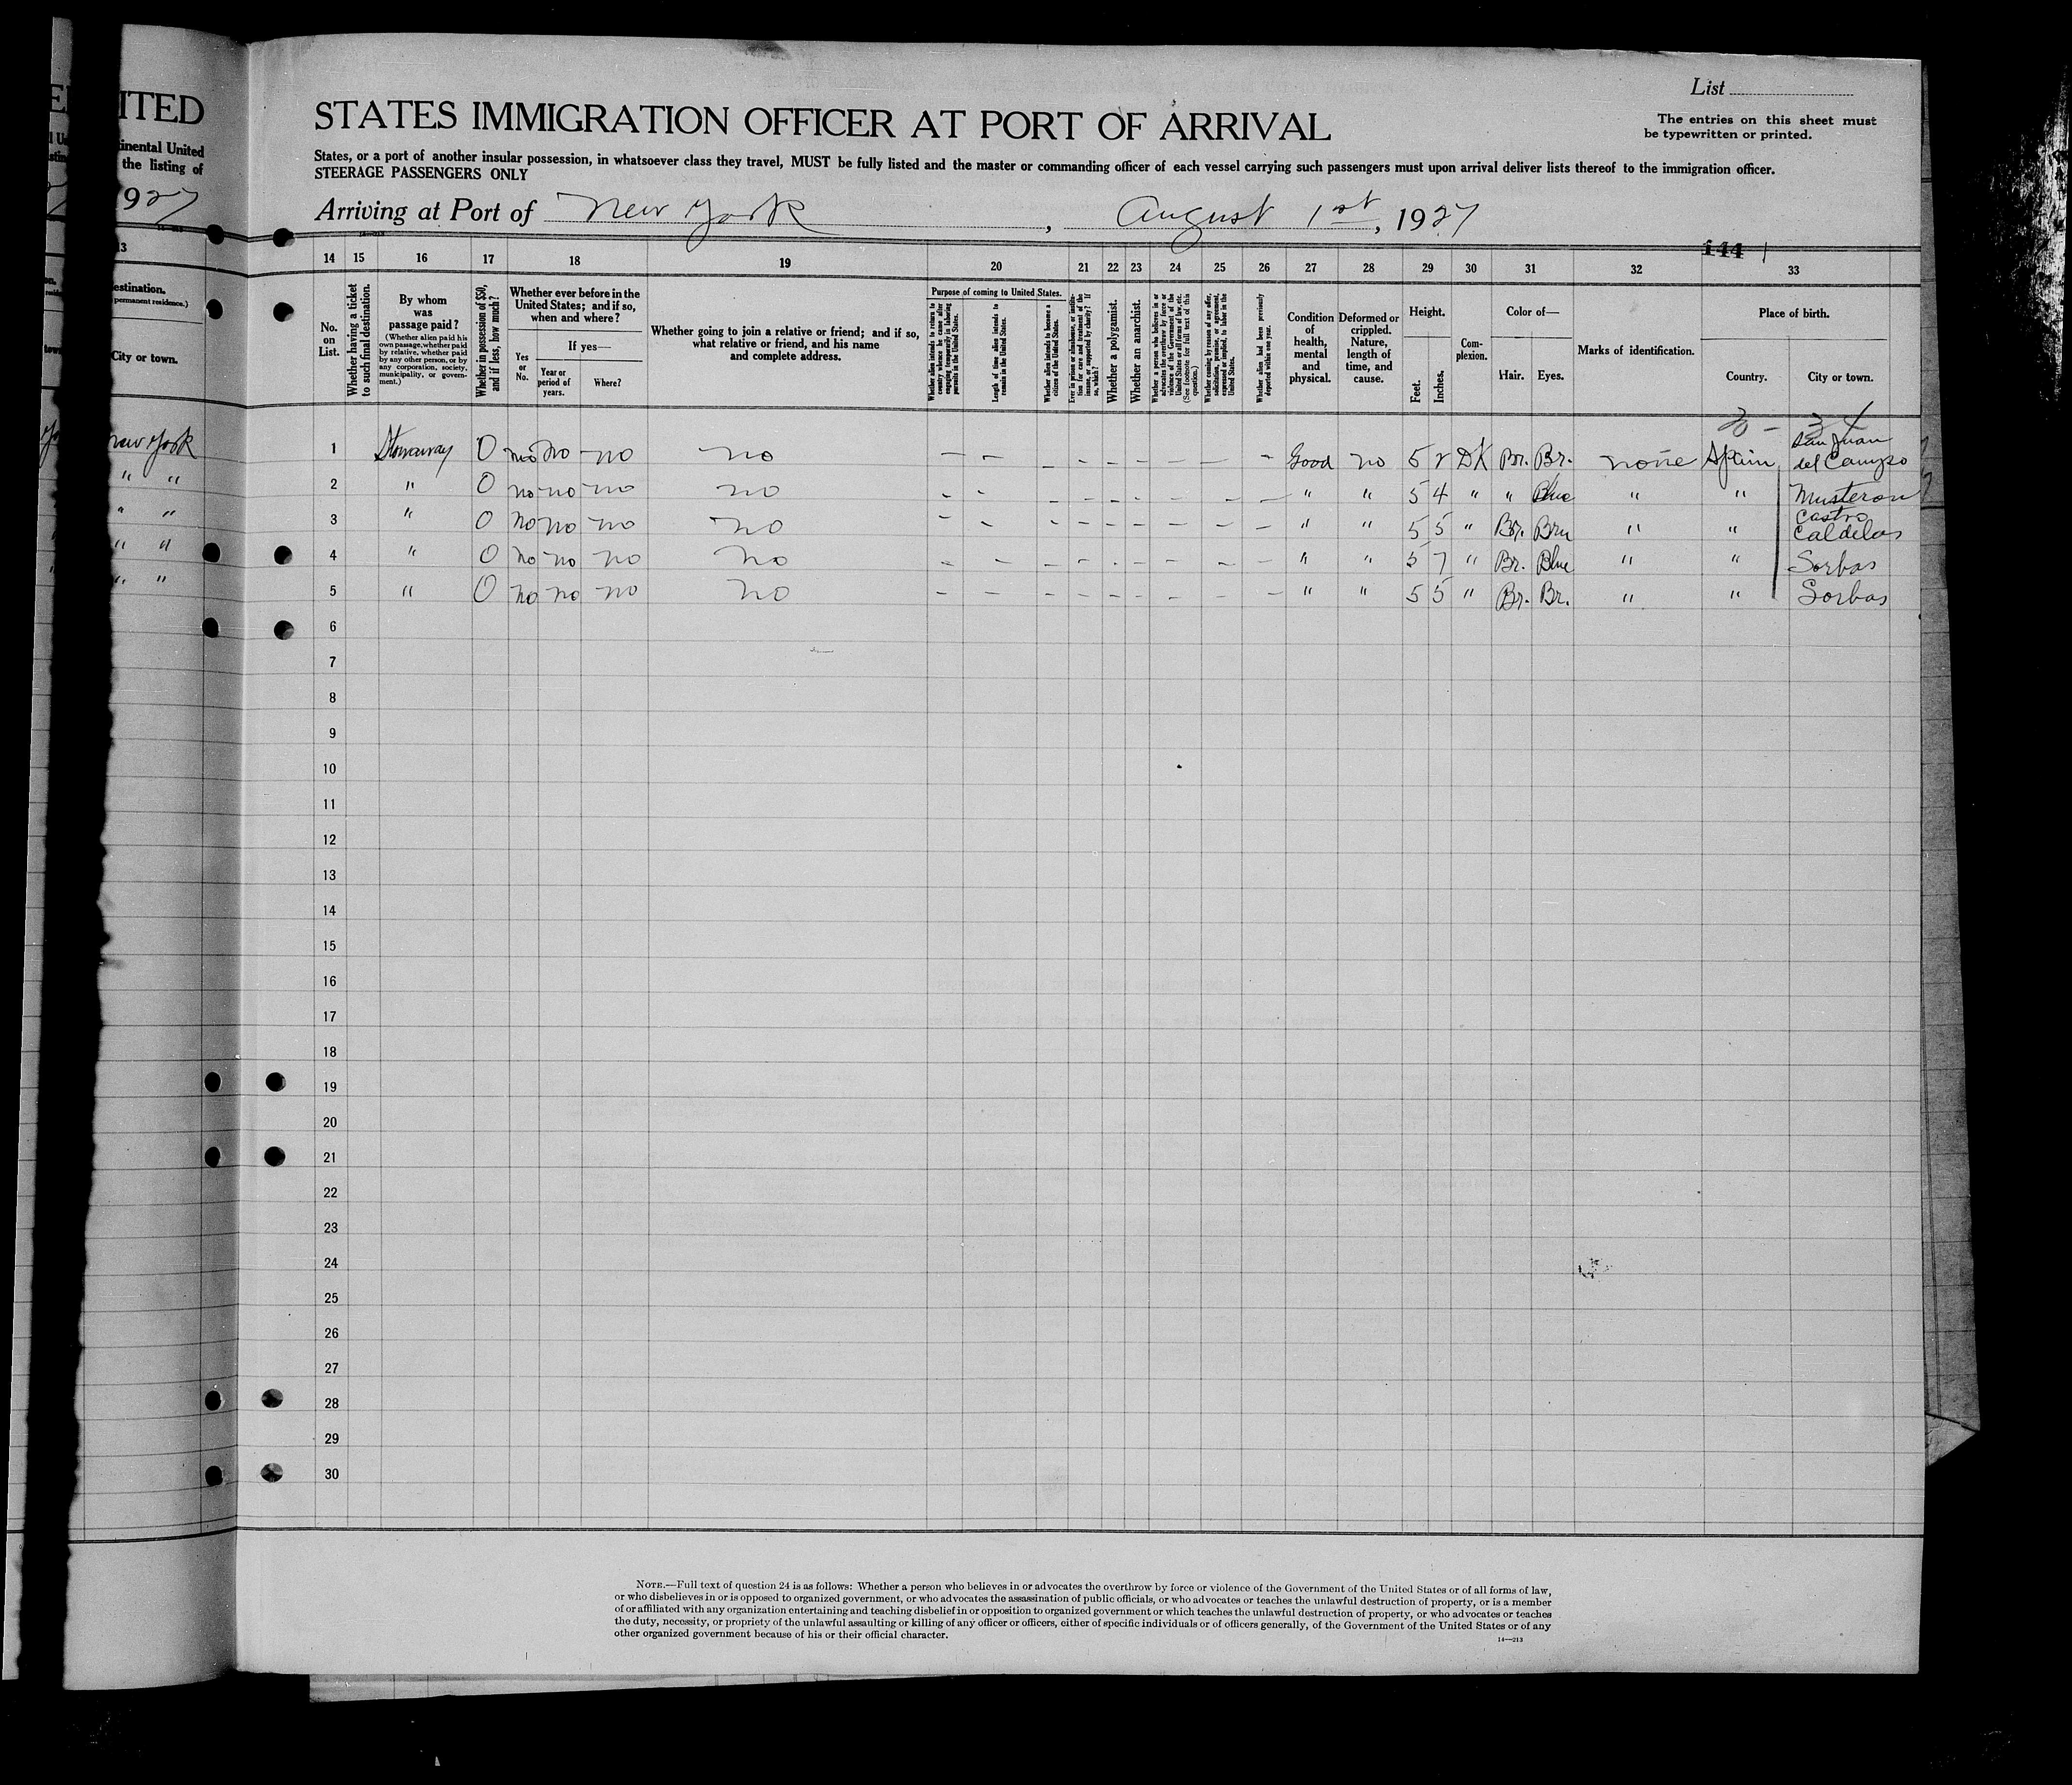 ITED
inental United
the listing of
1927
13
estination.
permanent residence.)
City or town.
new York
" "
" "
" "
" "
List
The entries on this sheet must
be typewritten or printed.
STATES IMMIGRATION OFFICER AT PORT OF ARRIVAL
States, or a port of another insular possession, in whatsoever class they travel, MUST be fully listed and the master or commanding officer of each vessel carrying such passengers must upon arrival deliver lists thereof to the immigration officer.
STEERAGE PASSENGERS ONLY
Arriving at Port of New York, August 1st, 1927
144
14 15 16 17 18 19 20 21 22 23 24 25 26 27 28 29 30 31 32 33
No. on List.
Whether having a ticket to such final destination.
By whom was passage paid?
(Whether alien paid his own passage, whether paid by relative, whether paid by any other person, or by any corporation, society, municipality, or government.)
Whether in possession of $50, and if less, how much?
Whether ever before in the United States; and if so, when and where?
Yes or No.
If yes—
Year or period of years.
Where?
Whether going to join a relative or friend; and if so, what relative or friend, and his name and complete address.
Purpose of coming to United States.
Whether alien intends to return to country whence he came after engaging temporarily in laboring pursuits in the United States.
Length of time alien intends to remain in the United States.
Whether alien intends to become a citizen of the United States.
Ever in prison or almshouse, or institution for care and treatment of the insane, or supported by charity? If so, which?
Whether a polygamist.
Whether an anarchist.
Whether a person who believes in or advocates the overthrow by force or violence of the Government of the United States or all forms of law, etc. (See footnote for full text of this question.)
Whether coming by reason of any offer, solicitation, promise, or agreement, expressed or implied, to labor in the United States.
Whether alien had been previously deported within one year.
Condition of health, mental and physical.
Deformed or crippled. Nature, length of time, and cause.
Height.
Feet. Inches.
Complexion.
Color of—
Hair. Eyes.
Marks of identification.
Place of birth.
Country. City or town.
1 Stowaway 0 no no no no — — — — — — — — — Good no 5 2 DK Br. Br. none Spain San Juan del Campo
2 " 0 no no no no — — — — — — — — — " " 5 4 " " Blue " " Musteron
3 " 0 no no no no — — — — — — — — — " " 5 5 " Br. Brn " " Castro Caldelas
4 " 0 no no no no — — — — — — — — — " " 5 7 " Br. Blue " " Sorbas
5 " 0 no no no no — — — — — — — — — " " 5 5 " Br. Br. " " Sorbas
6
7
8
9
10
11
12
13
14
15
16
17
18
19
20
21
22
23
24
25
26
27
28
29
30
NOTE.—Full text of question 24 is as follows: Whether a person who believes in or advocates the overthrow by force or violence of the Government of the United States or of all forms of law,
or who disbelieves in or is opposed to organized government, or who advocates the assassination of public officials, or who advocates or teaches the unlawful destruction of property, or is a member
of or affiliated with any organization entertaining and teaching disbelief in or opposition to organized government or which teaches the unlawful destruction of property, or who advocates or teaches
the duty, necessity, or propriety of the unlawful assaulting or killing of any officer or officers, either of specific individuals or of officers generally, of the Government of the United States or of any
other organized government because of his or their official character.
14—213